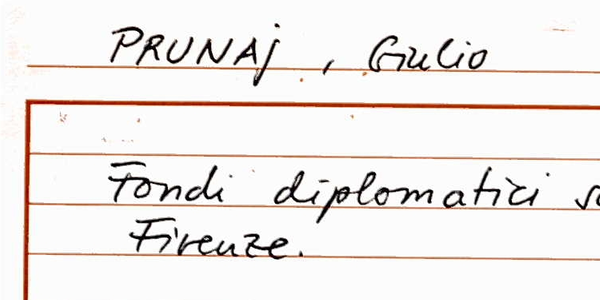 PRUNAj, Giulio
Fondi diplomatici
Firenze.